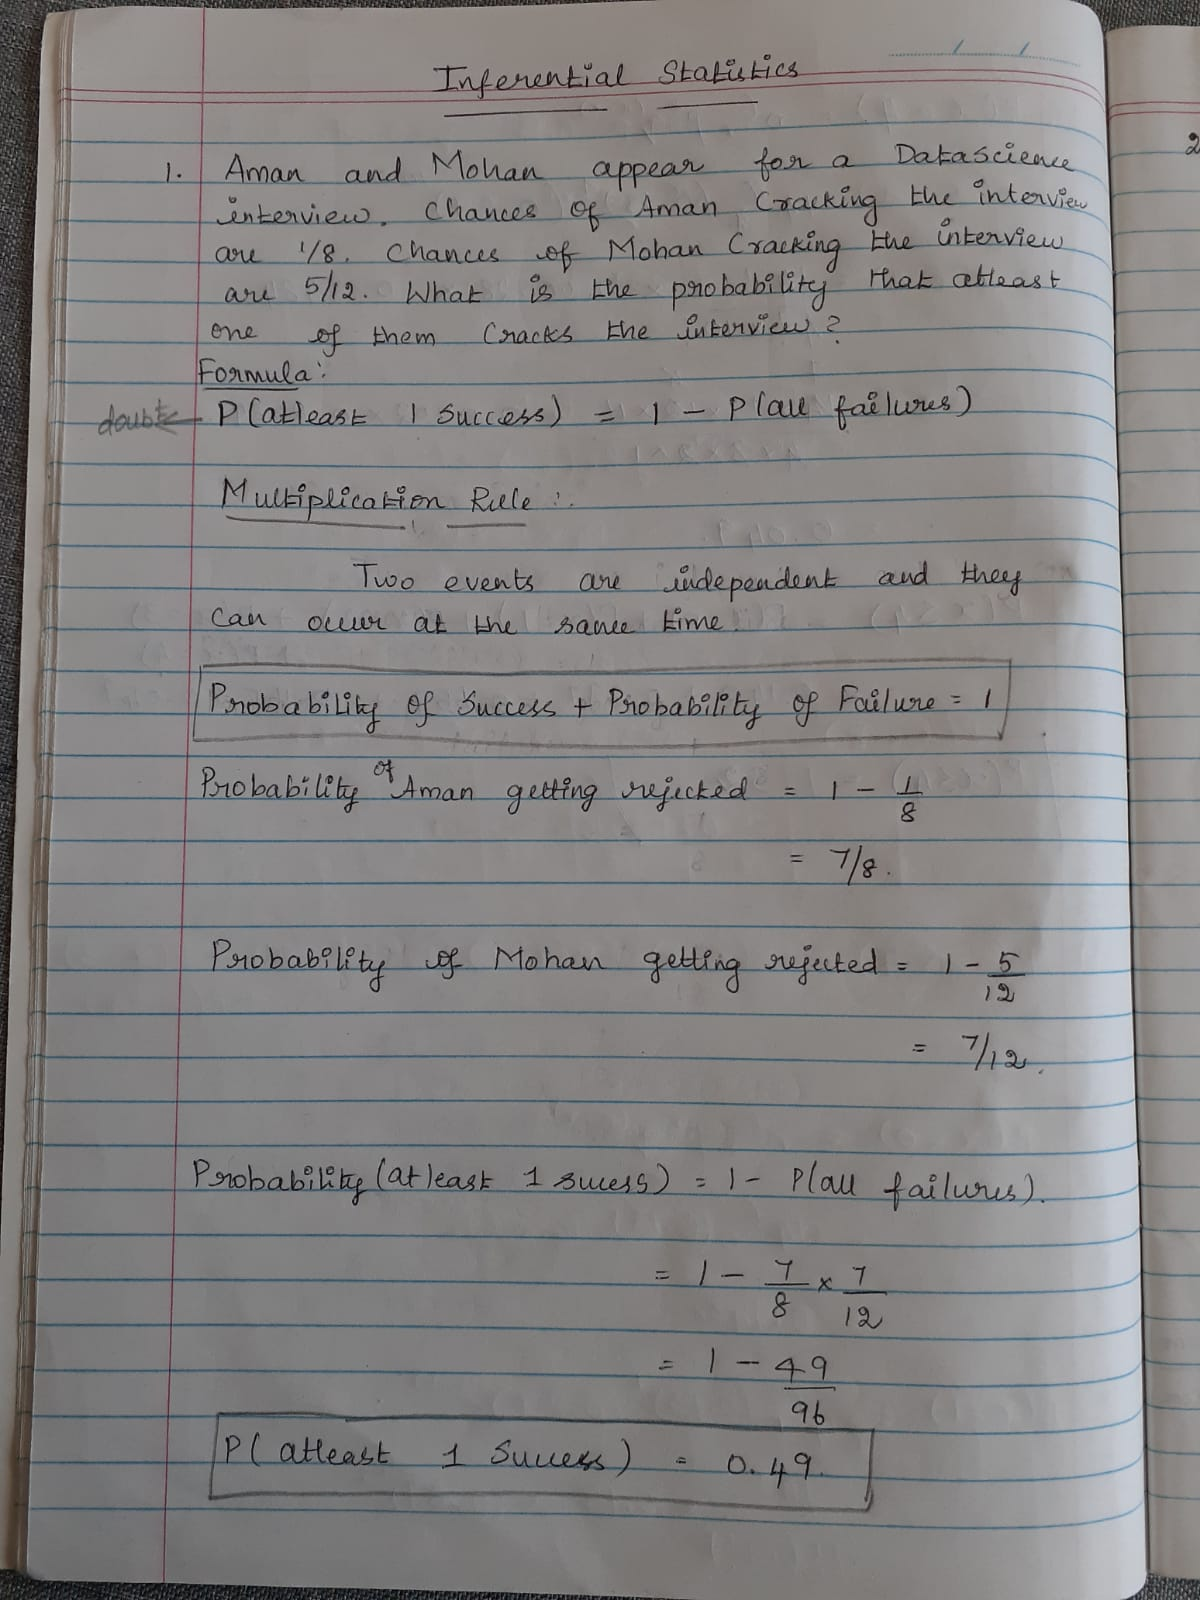 Inferential Statistics
1. Aman and Mohan appear for a Datascience
interview. Chances of Aman Cracking the interview
are 1/8. Chances of Mohan Cracking the interview
are 5/12. What is the probability that atleast
one of them Cracks the interview?
Formula:
doubt P(atleast 1 Success) = 1 - P(all failures)
Multiplication Rule:.
Two events are independent and they
can occur at the same time.
Probability of Success + Probability of Failure = 1
Probability of Aman getting rejected = 1 - 1/8
= 7/8.
Probability of Mohan getting rejected = 1 - 5/12
= 7/12.
Probability (atleast 1 sucess) = 1 - P(all failures).
= 1 - 7/8 x 7/12
= 1 - 49/96
P(atleast 1 Success) = 0.49.
2